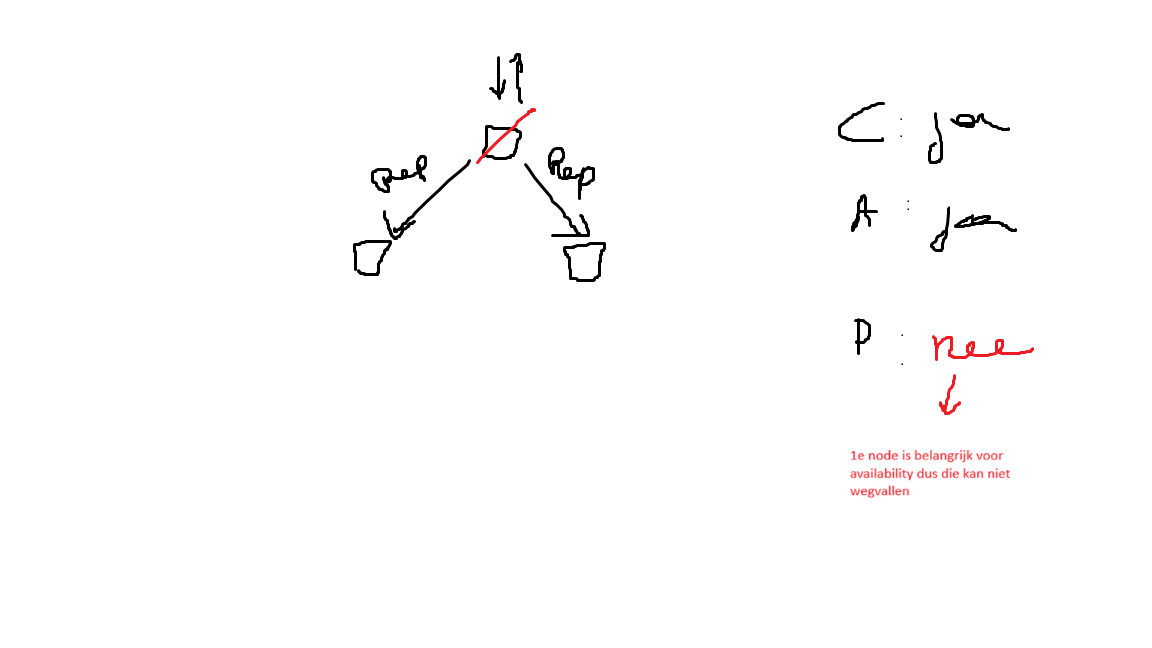 Rep
Rep
C : ja
A : ja
P : nee
1e node is belangrijk voor
availability dus die kan niet
wegvallen